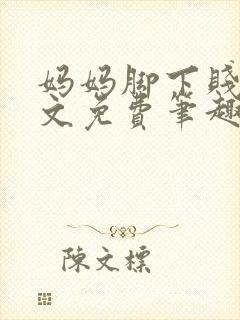 妈妈脚下贱
文免费笔趣
陈文標